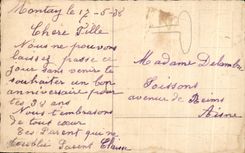 Montay le 17-5-38
Chère Fille
Nous ne pouvons
laissez passé ce
jour sans venir te
souhaiter un bon
anniversaire pour
tes 30 ans
Nous t'embrassons
de tout cœur
tes Parent que ne
t'oublie Parent
Madame Delambre
Soissons
avenue de Reims
Aisne